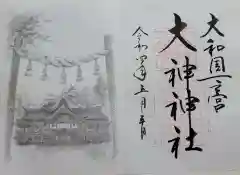 大和國一之宮
大神神社
令和四年五月五日